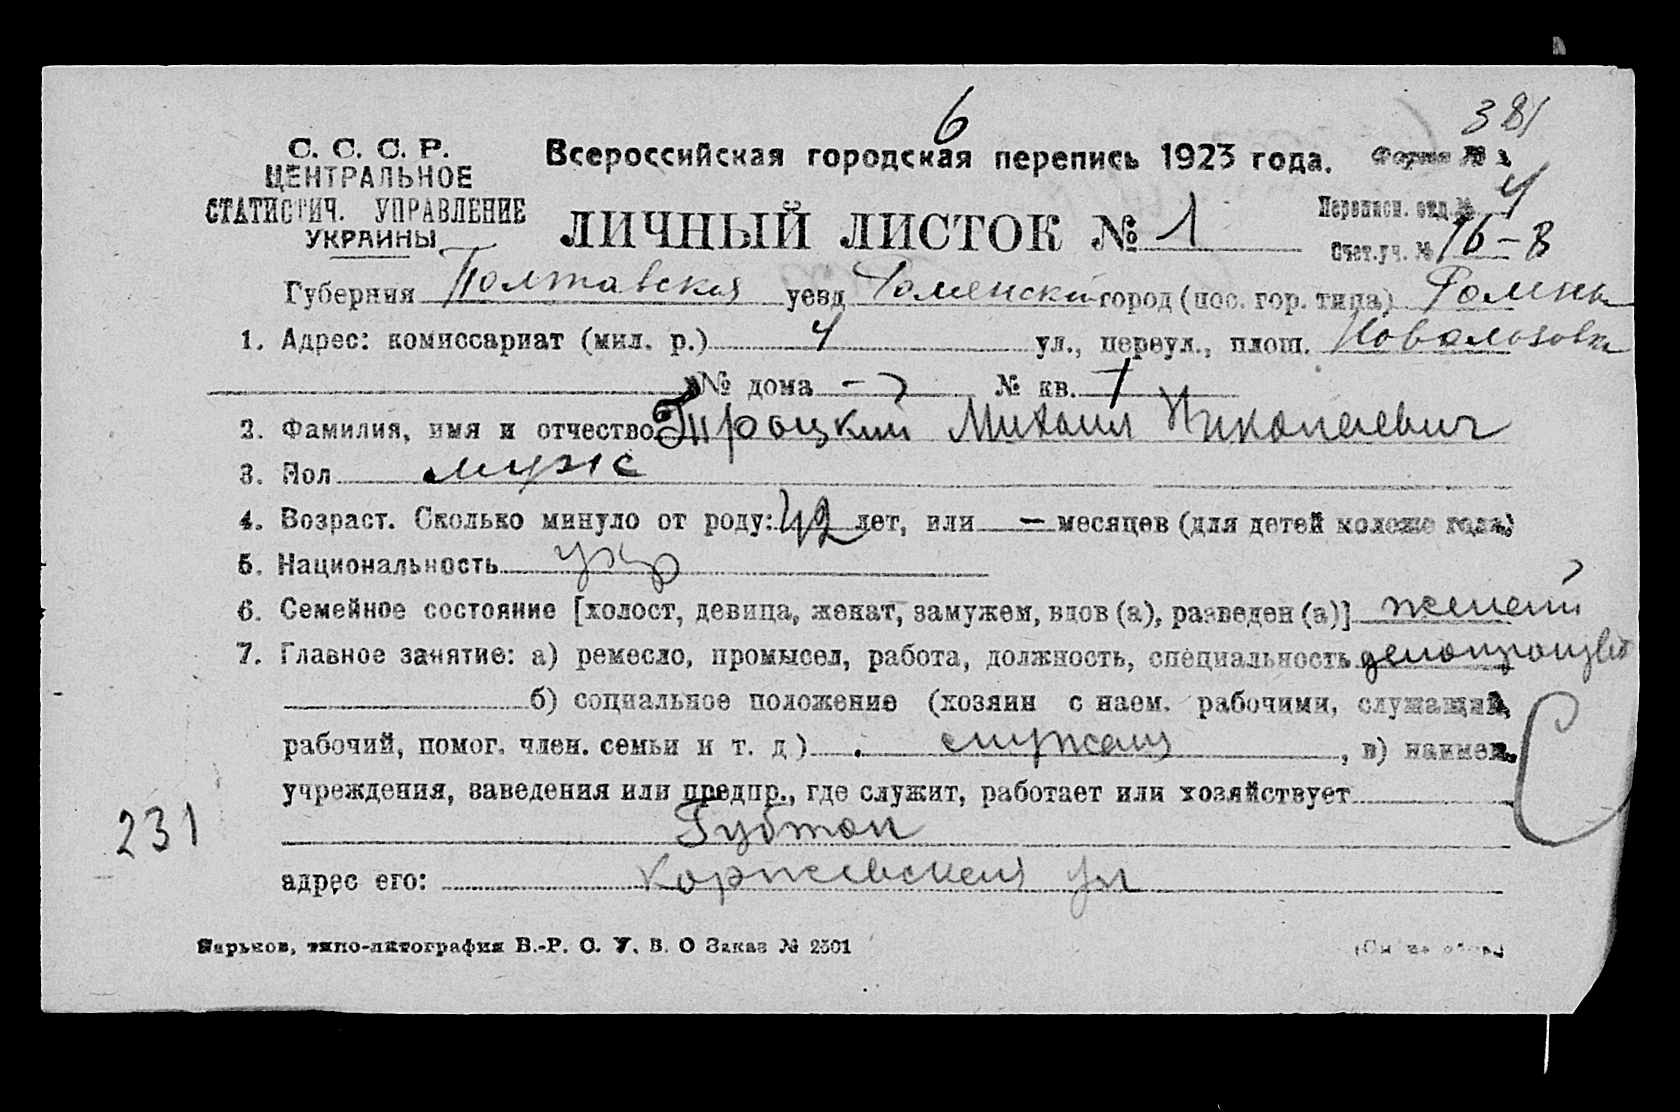 6
381
С. С. С. Р.
ЦЕНТРАЛЬНОЕ
СТАТИСТИЧ. УПРАВЛЕНИЕ
УКРАИНЫ
Всероссийская городская перепись 1923 года.
Форма №
ЛИЧНЫЙ ЛИСТОК № 1
Переписн. отд. № 4
Счет. уч. № 16-В
Губерния Полтавская уезд Роменский город (пос. гор. типа) Ромны
1. Адрес: комиссариат (мил. р.) 4 ул., переул., площ.
№ дома № кв.
2. Фамилия, имя и отчество Тироцкий Михаил Николаевич
3. Пол муж
4. Возраст. Сколько минуло от роду: 42 лет, или — месяцев (для детей моложе года)
5. Национальность укр
6. Семейное состояние [холост, девица, женат, замужем, вдов (а), разведен (а)] женат
7. Главное занятие: а) ремесло, промысел, работа, должность, специальность делопроизв
б) социальное положение (хозяин с наем. рабочими, служащий,
рабочий, помог. член. семьи и т. д) служащ, в) наимен.
С
учреждения, заведения или предпр., где служит, работает или хозяйствует
231
Губтоп
адрес его: Коржевская ул
Харьков, типо-литография В.-Р. С. У. В. О Заказ № 2301
(См на обор.)